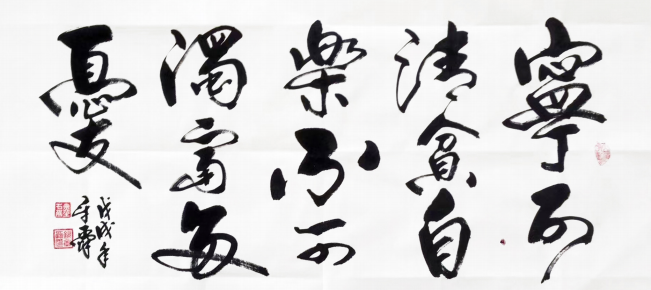 寧可
清貧自
樂不可
濁富多
憂
戊戌年